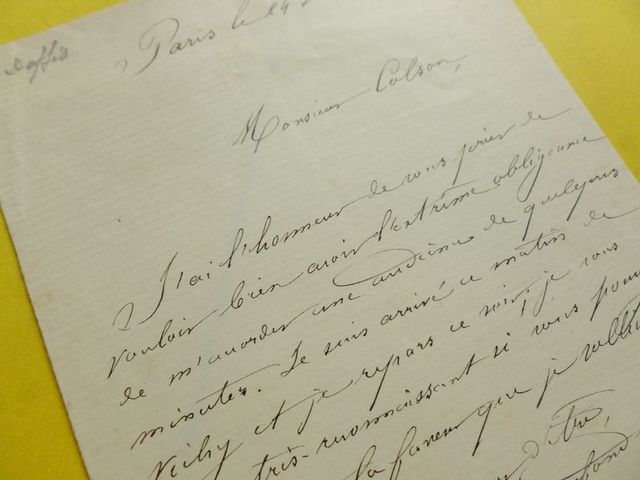 Doffis
Paris le 24
Monsieur Colson,
J'ai l'honneur de vous prier de
vouloir bien avoir l'extrême obligeance
de m'accorder une audience de quelques
minutes. Je suis arrivé ce matin de
Vichy et je repars ce soir, je vous
très-reconnaissant si vous
la faveur que je
d'être,